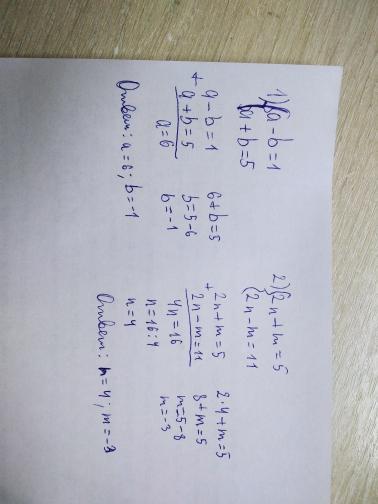 1) { a - b = 1
a + b = 5
+ a - b = 1
a + b = 5
a = 6
6 + b = 5
b = 5 - 6
b = -1
Ответ: a = 6; b = -1
2) { 2n + m = 5
2n - m = 11
+ 2n + m = 5
2n - m = 11
4n = 16
n = 16 : 4
n = 4
2 · 4 + m = 5
8 + m = 5
m = 5 - 8
m = -3
Ответ: n = 4; m = -3